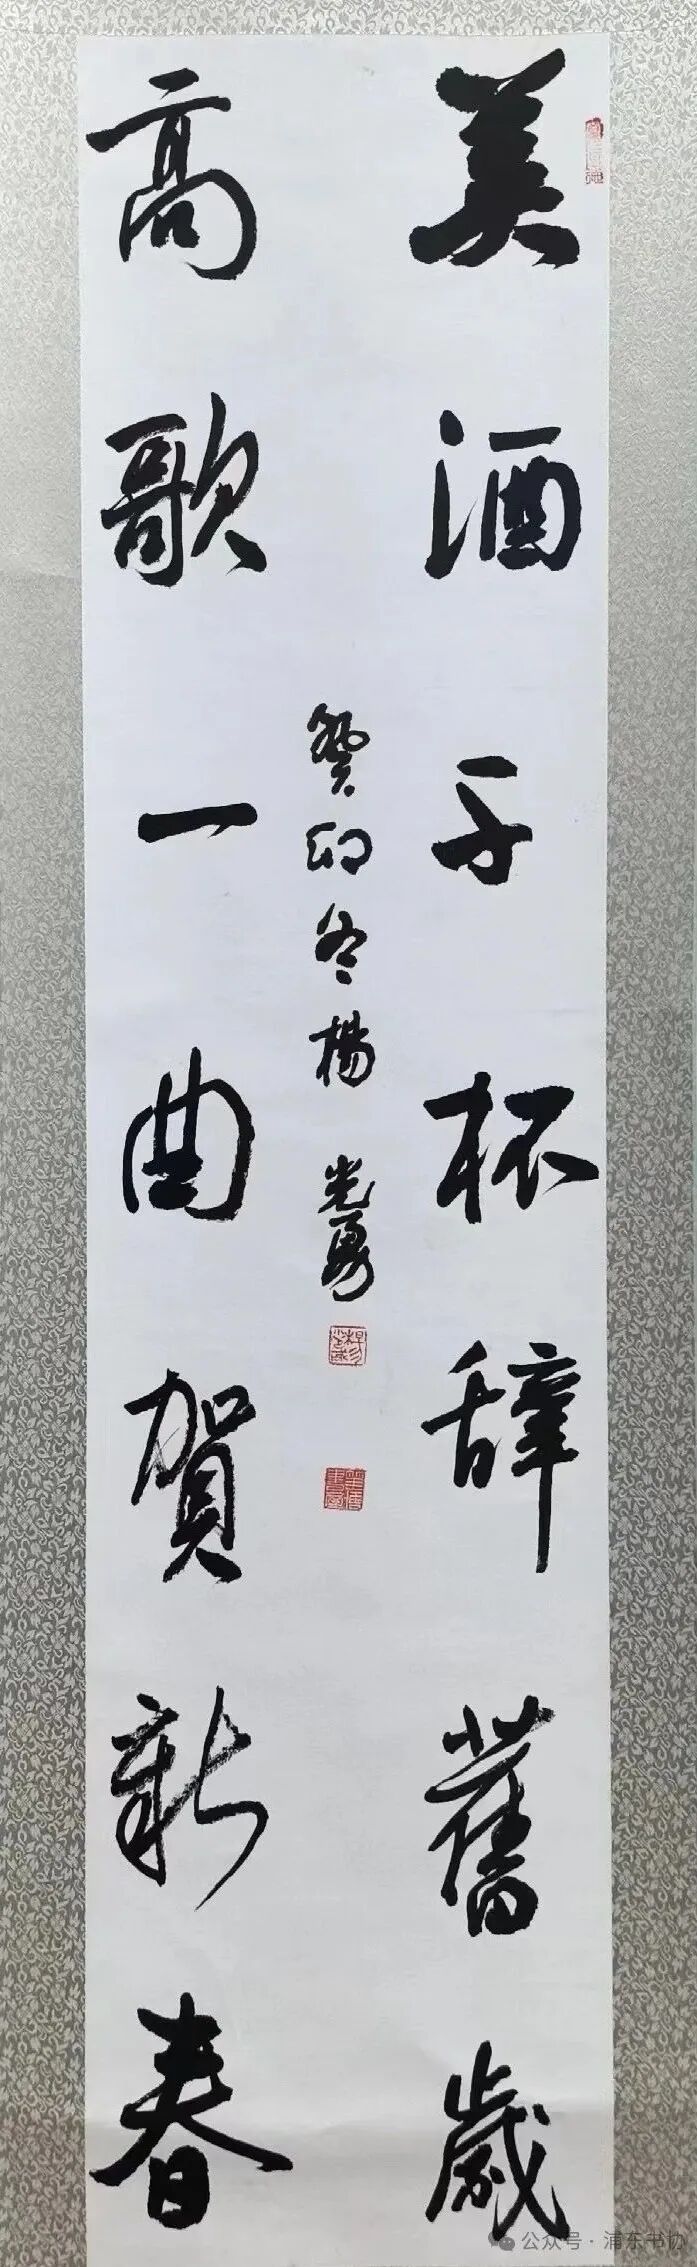 美酒千杯辞舊歲
高歌一曲賀新春
癸卯冬楊光勇
公众号 · 浦东书协